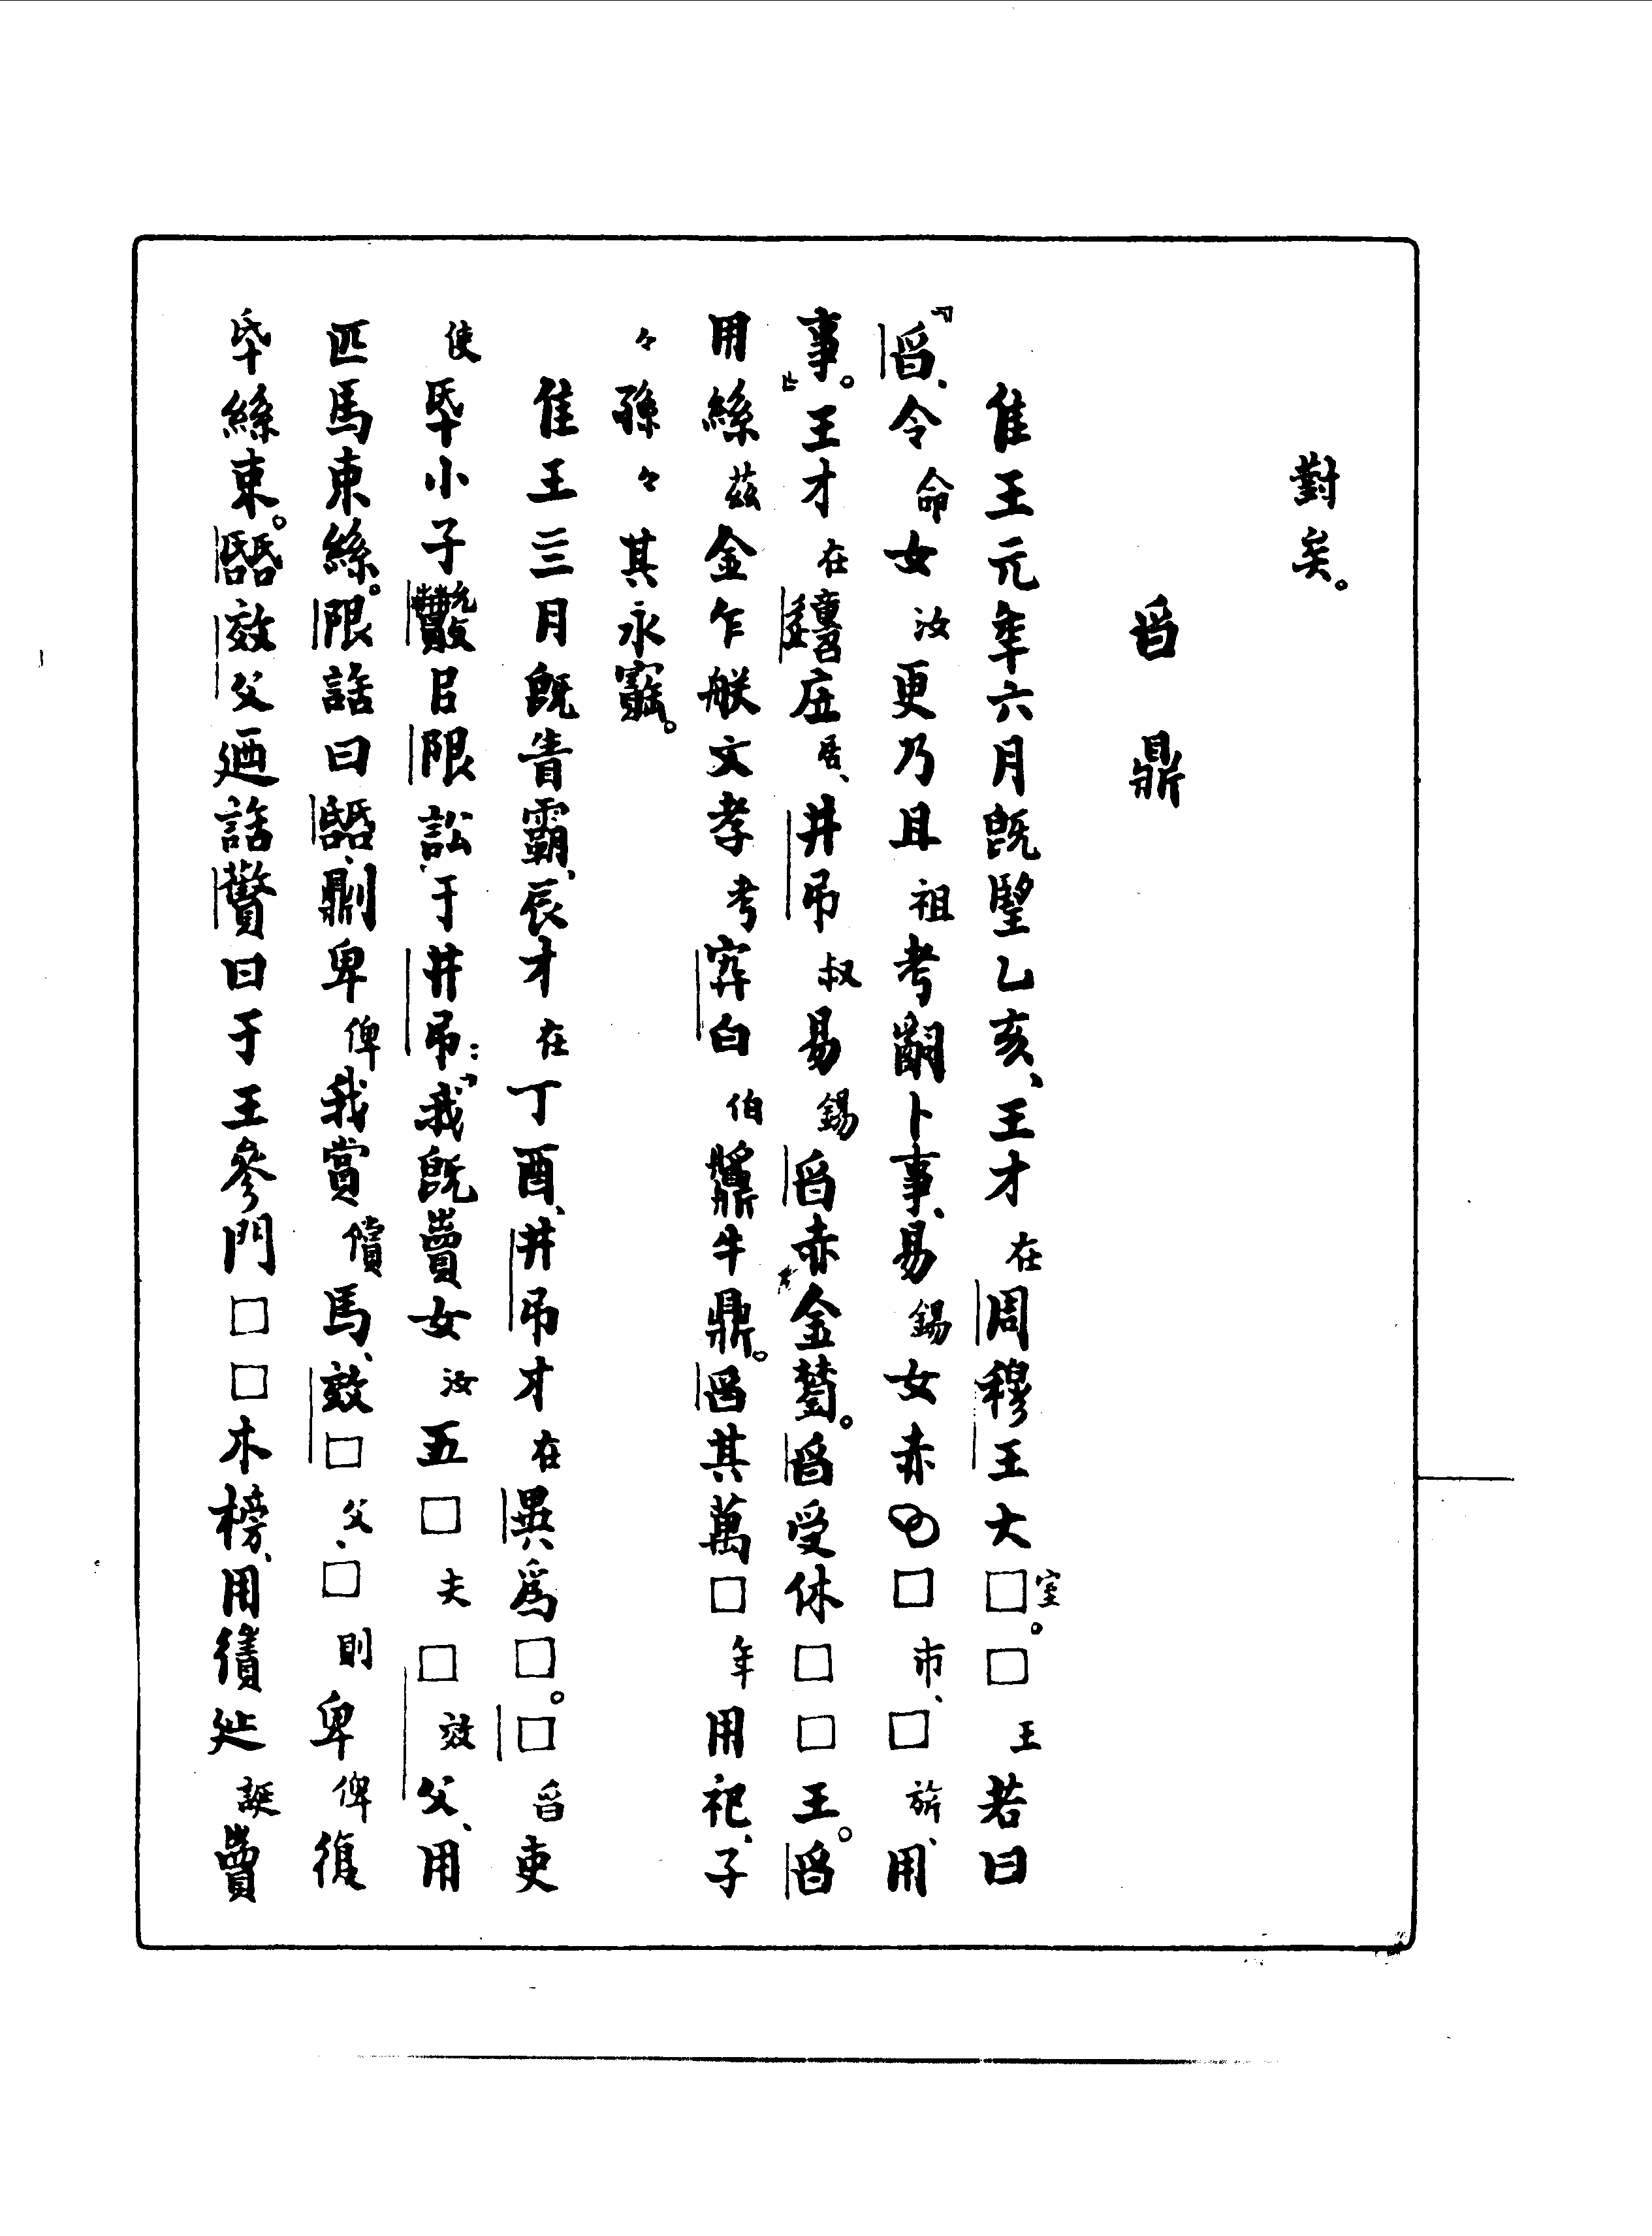 對矣。
曶鼎
隹王元年六月既朢乙亥、王才在周穆王大□室。□王若曰
『曶、令命女汝更乃且祖考嗣卜事、易錫女赤□市、□旂、用
事。』王才在应居、井弔叔易錫曶赤金。曶受休□□王。曶
用絲茲金乍朕文孝考弃白伯牛鼎。曶其萬□年用祀、子
々孫々其永寶。
隹王三月既眚霸、辰才在丁酉、井弔才在異爲□。□曶吏
使氒小子㠯限訟于井弔:『我既賣女汝五□夫□效父、用
匹馬束絲。限誥曰卑俾我賞償馬、效□父、□則卑俾復
氒絲束。效父廼誥曰于王參門□□木榜、用徝誕賣